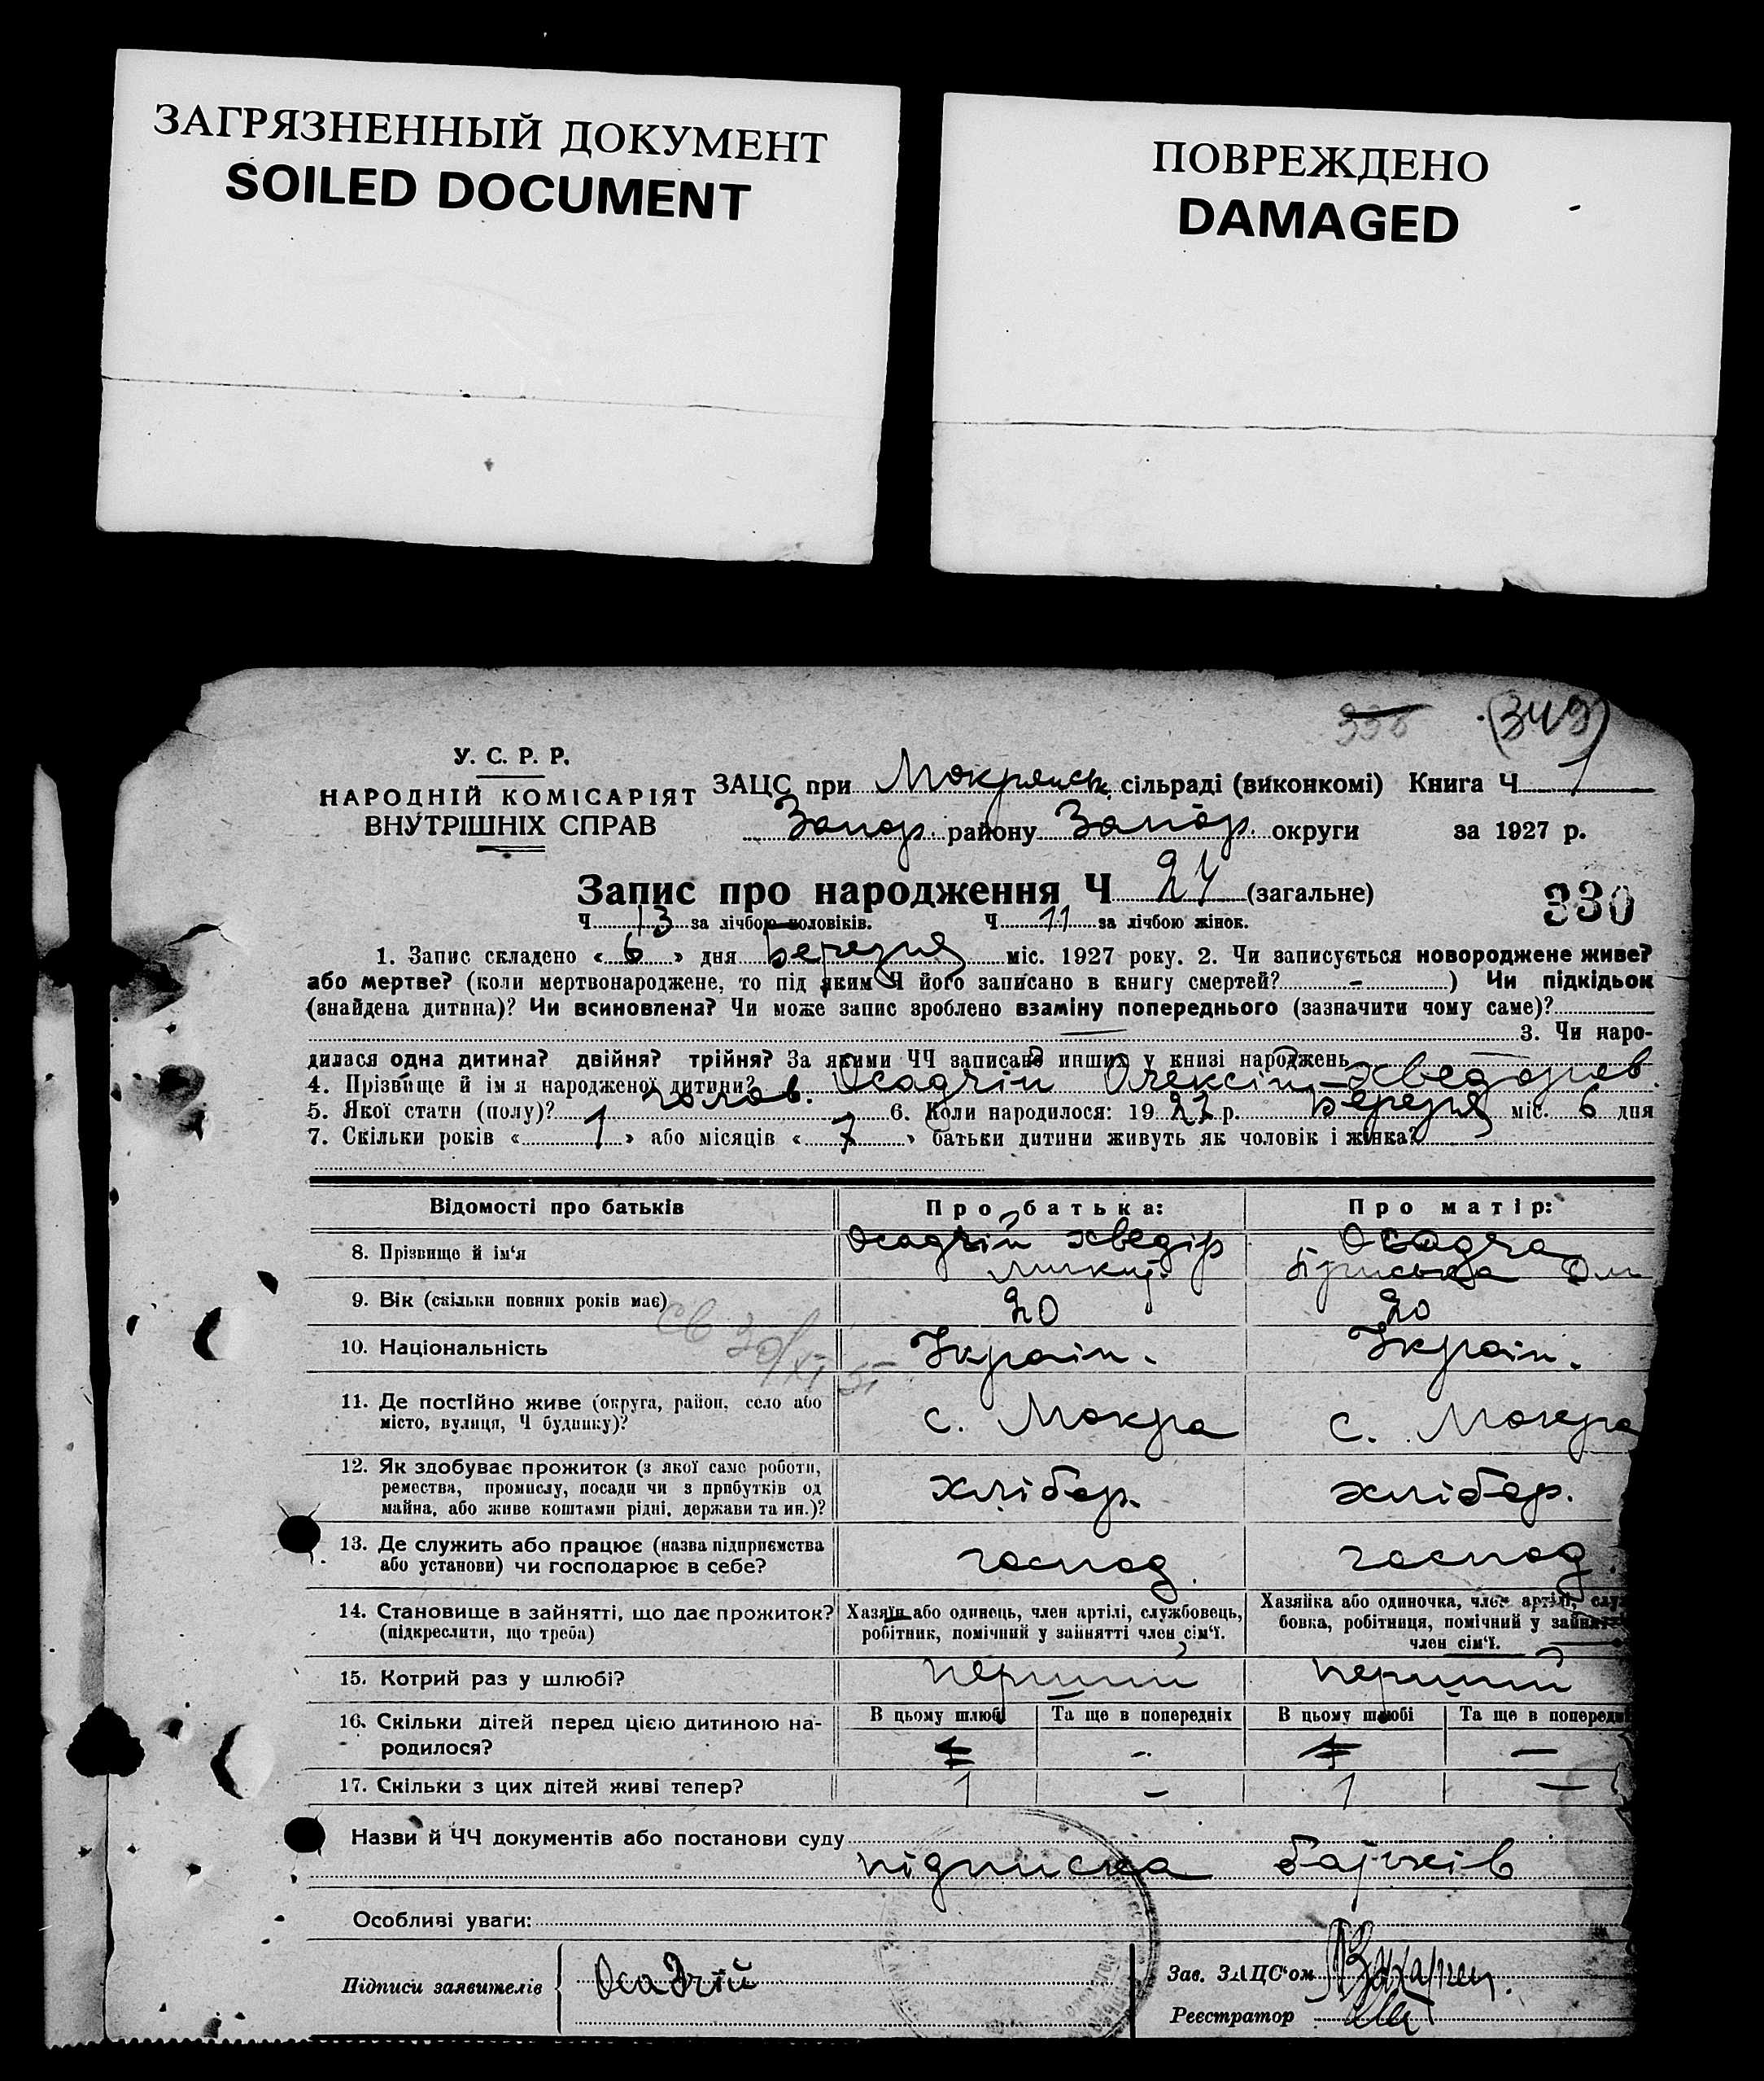 ЗАГРЯЗНЕННЫЙ ДОКУМЕНТ
SOILED DOCUMENT
ПОВРЕЖДЕНО
DAMAGED
336 (349)
У. С. Р. Р.
НАРОДНІЙ КОМІСАРІЯТ
ВНУТРІШНІХ СПРАВ
ЗАЦС при Мокрянськ. сільраді (виконкомі) Книга Ч 1
Запор. району Запор. округи за 1927 р.
Запис про народження Ч 24 (загальне)
330
Ч 13 за лічбою чоловіків. Ч 11 за лічбою жінок.
1. Запис складено « 6 » дня Березня міс. 1927 року. 2. Чи записується новороджене живе?
або мертве? (коли мертвонароджене, то під яким Ч його записано в книгу смертей? - ) Чи підкідьок
(знайдена дитина)? Чи всиновлена? Чи може запис зроблено взаміну попереднього (зазначити чому саме)?
3. Чи наро-
дилася одна дитина? двійня? трійня? За якими ЧЧ записано инших у книзі народжень
4. Прізвище й ім я народженої дитини? Осадчій Олексій Хведорев.
5. Якої стати (полу)? 1 чолов. 6. Коли народилося: 1927 р. Березня міс. 6 дня
7. Скільки років « 1 » або місяців « 7 » батьки дитини живуть як чоловік і жінка?
Відомості про батьків
Про батька:
Про матір:
8. Прізвище й ім‘я
Осадчій Хведір
Осадча
9. Вік (скільки повних років має)
20
20
10. Національність
Україн.
Україн.
11. Де постійно живе (округа, район, село або
місто, вулиця, Ч будинку)?
с. Мокра
с. Мокра
12. Як здобуває прожиток (з якої саме роботи,
ремества, промислу, посади чи з прибутків од
майна, або живе коштами рідні, держави та ин.)?
хлібор.
хлібор.
13. Де служить або працює (назва підприємства
або установи) чи господарює в себе?
господ.
господ.
14. Становище в зайнятті, що дає прожиток?
(підкреслити, що треба)
Хазяїн або одинець, член артілі, службовець,
робітник, помічний у зайнятті член сім‘ї.
Хазяйка або одиночка, член артілі, служ
бовка, робітниця, помічний у зайнятті
член сім‘ї.
15. Котрий раз у шлюбі?
перший
перший
16. Скільки дітей перед цією дитиною на-
родилося?
В цьому шлюбі
Та ще в попередніх
В цьому шлюбі
Та ще в попередні
1 - 1 -
17. Скільки з цих дітей живі тепер?
1 - 1 -
Назви й ЧЧ документів або постанови суду
підписка батьків
Особливі уваги:
Підписи заявителів
Осадчій
Зав. ЗАЦС‘ом
Реєстратор